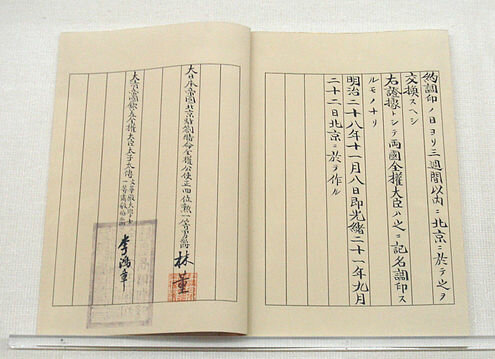 約調印ノ日ヨリ三週間以内ニ北京ニ於テ之ヲ
交換スヘシ
右證據トシテ両國全權大臣ハ之ニ記名調印ス
ルモノナリ
明治二十八年十一月八日即光緒二十一年九月
二十二日北京ニ於テ作ル
大日本帝國北京駐劄特命全權公使正四位勲一等男爵 林董
大淸帝國欽差全權大臣太子太傅文華殿大學士
一等肅毅伯爵 李鴻章